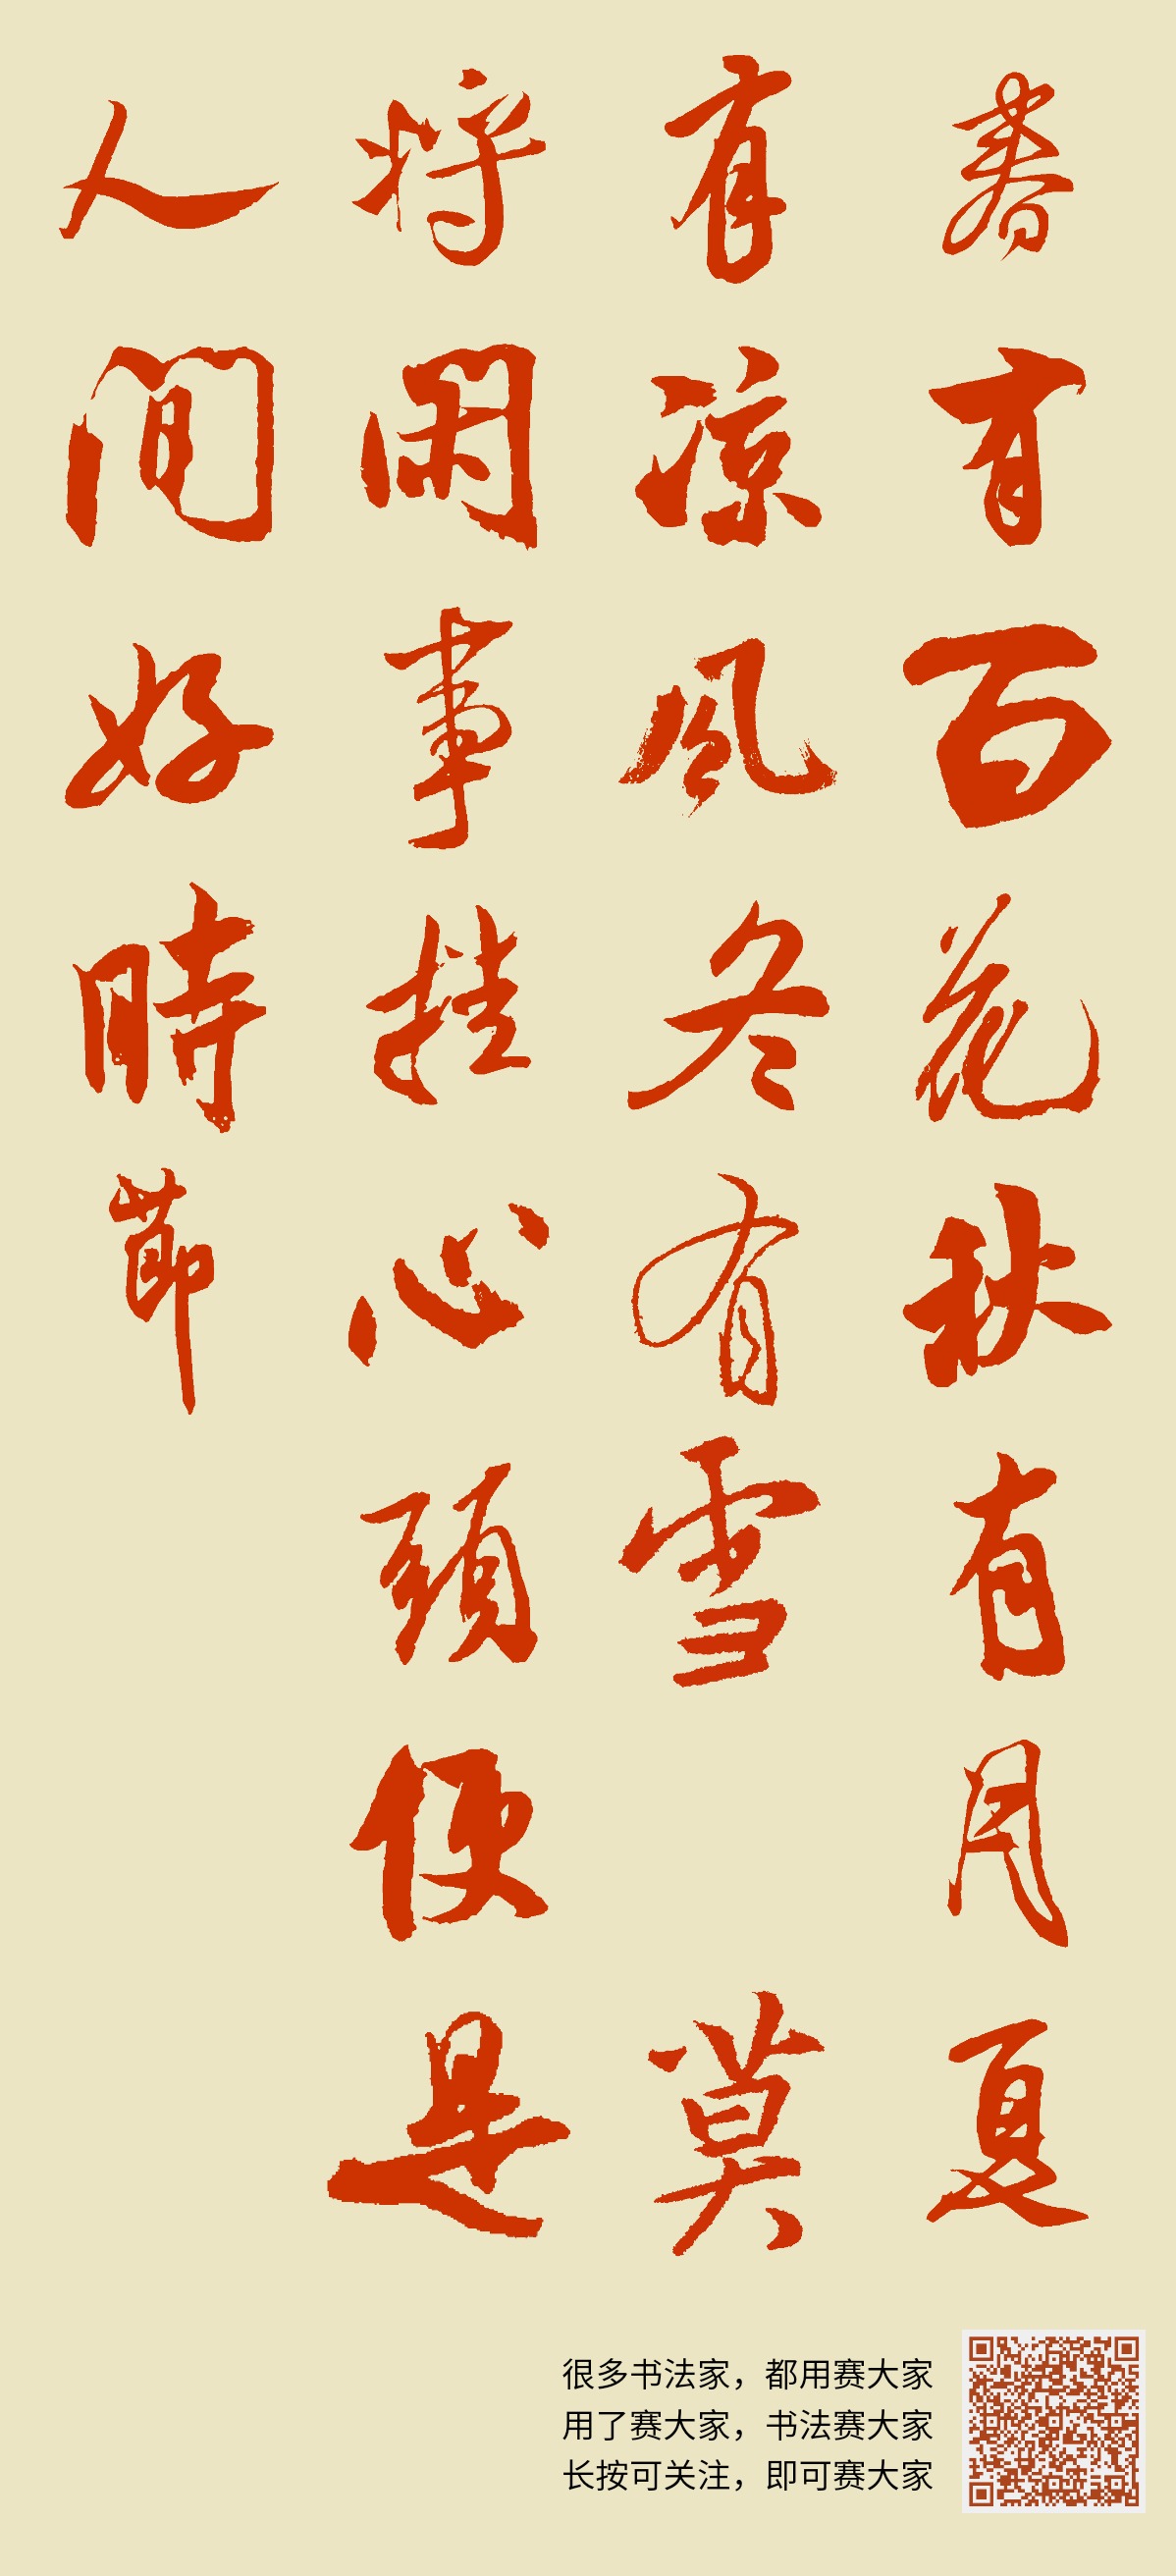 春有百花秋有月夏
有凉风冬有雪 莫
将闲事挂心头便是
人间好时节
很多书法家，都用赛大家
用了赛大家，书法赛大家
长按可关注，即可赛大家